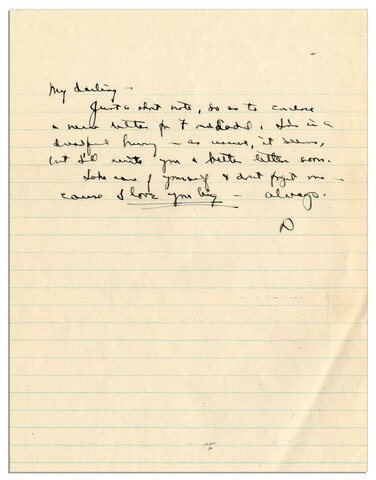 My darling -
Just a short note, so as to enclose
a letter for I'm in a
dreadful hurry - as usual, it seems,
but I'll write you a better letter soon.
Take care of yourself & don't forget me -
cause I love you big - always.
D